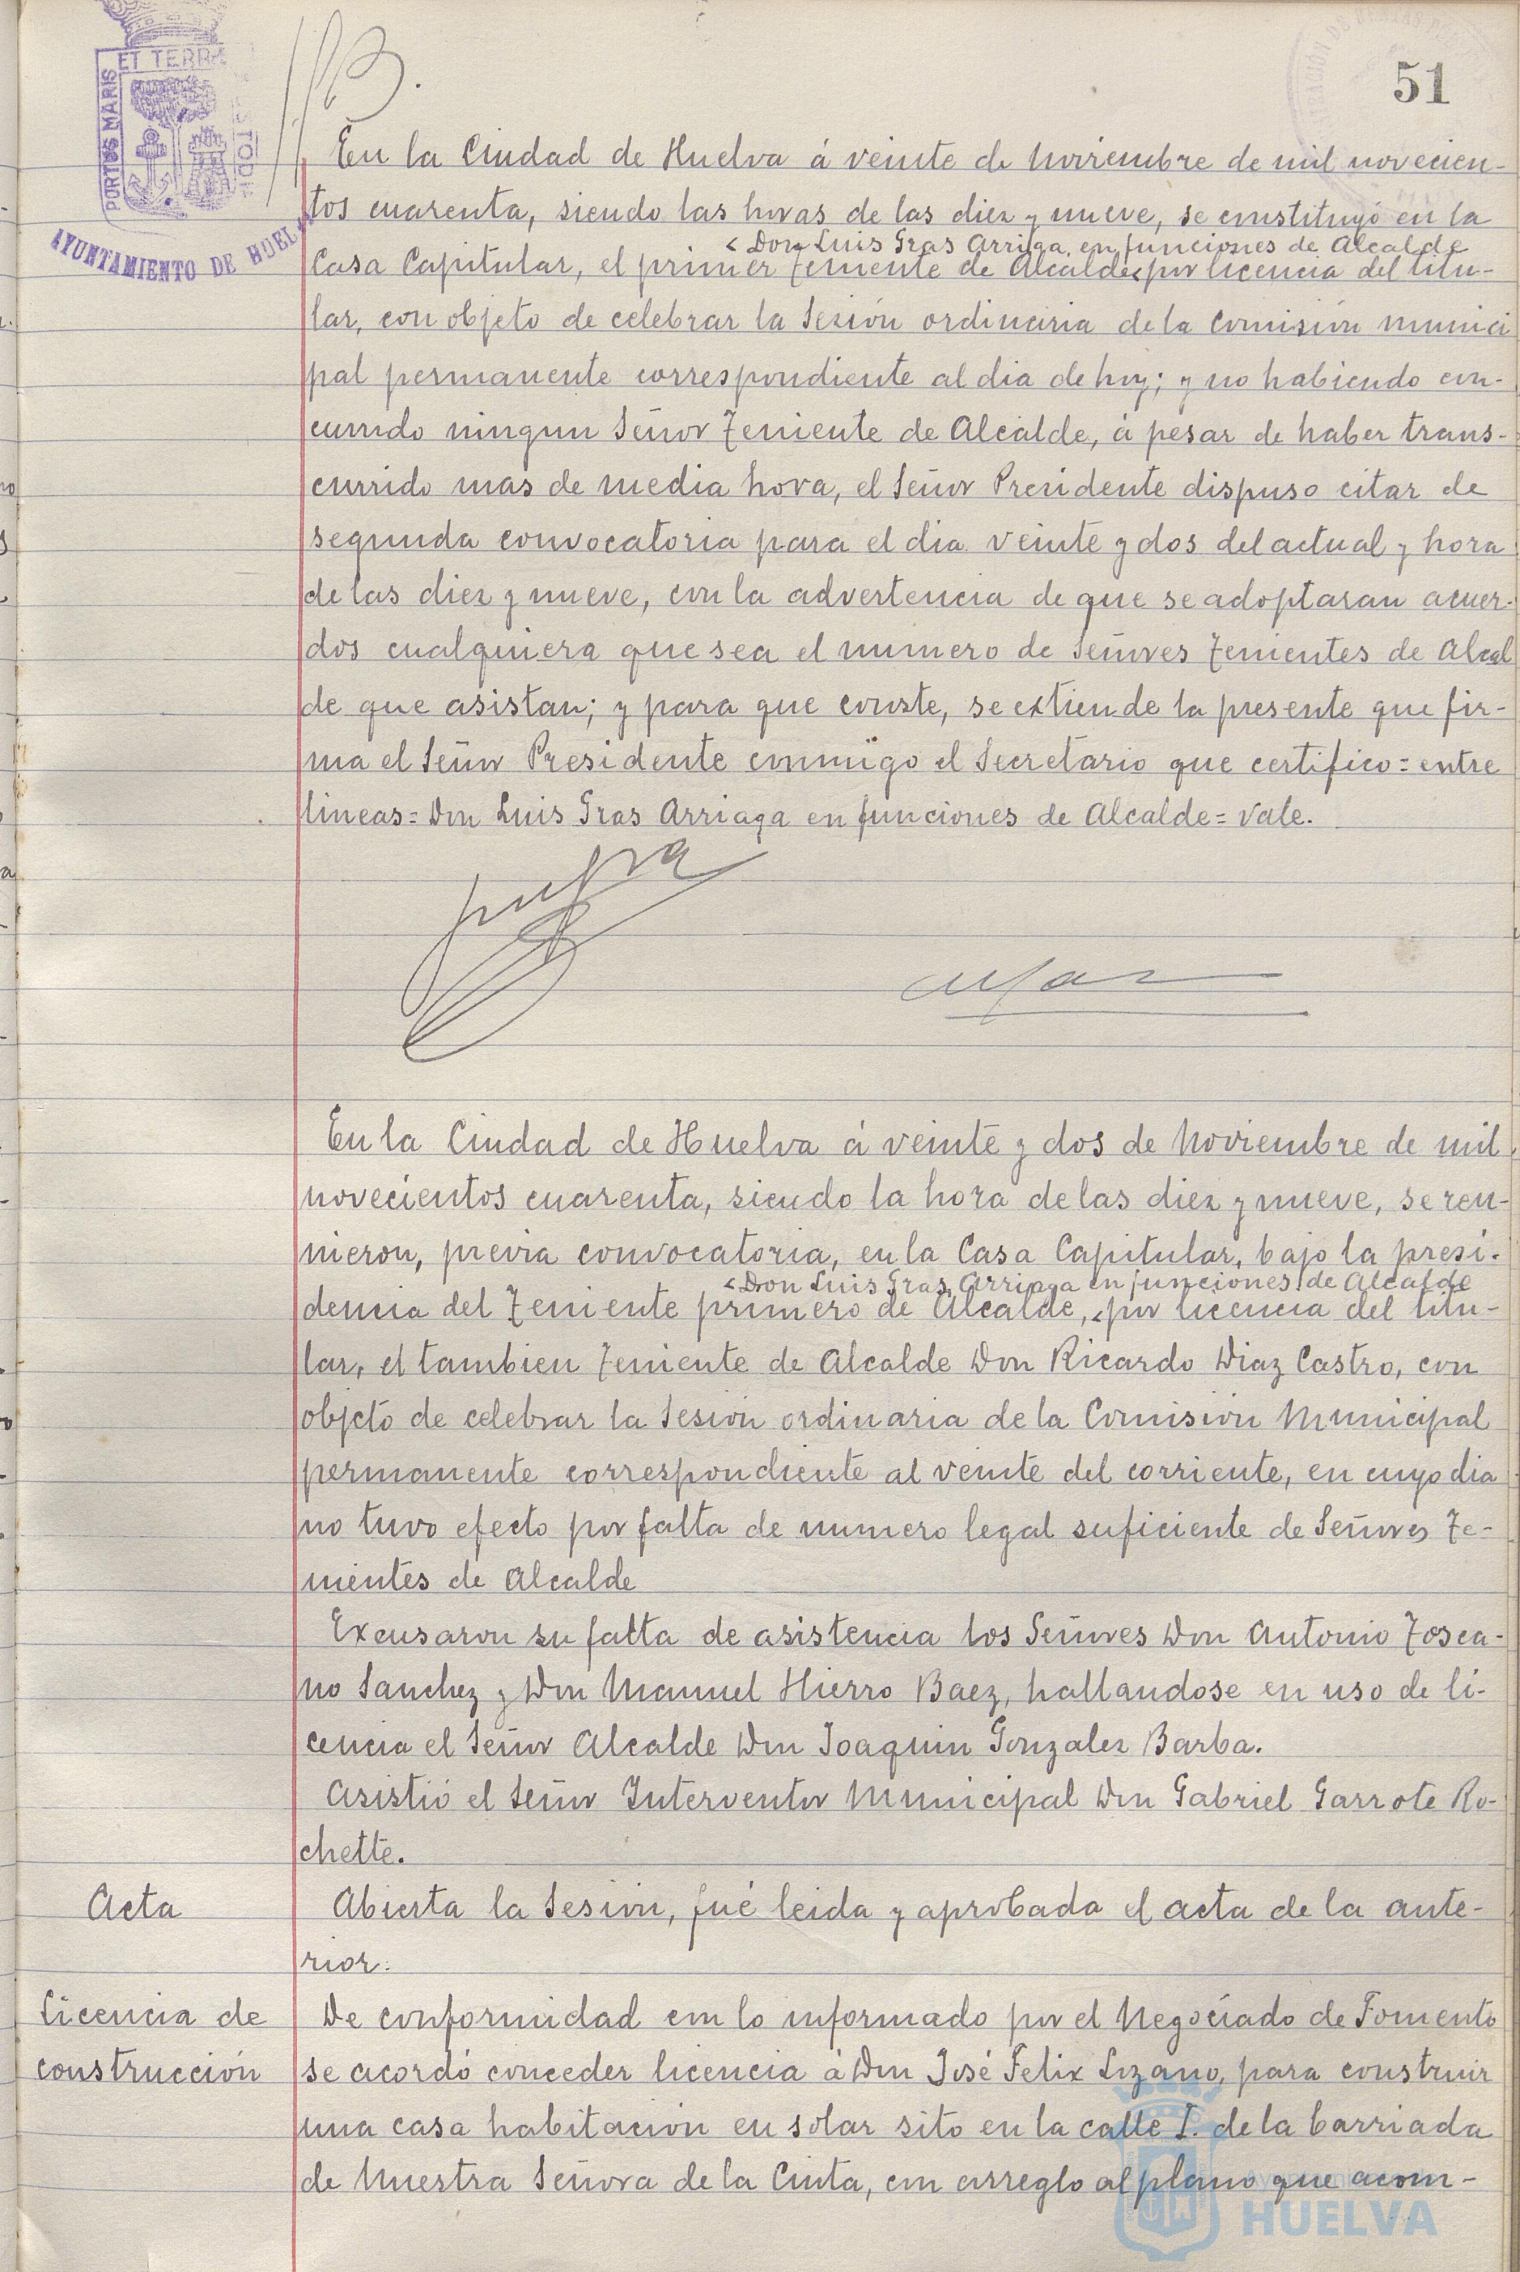 51
PORTUS MARIS ET TERRAE CUSTODIA
AYUNTAMIENTO DE HUELVA
En la Ciudad de Huelva á veinte de Noviembre de mil novecien-
tos cuarenta, siendo las horas de las diez y nueve, se constituyó en la
< Don Luis Gras Arriaga en funciones de Alcalde
Casa Capitular, el primer Teniente de Alcalde< por licencia del titu-
lar, con objeto de celebrar la Sesión ordinaria de la Comisión munici
pal permanente correspondiente al dia de hoy; y no habiendo con-
currido ningun Señor Teniente de Alcalde, á pesar de haber trans-
currido mas de media hora, el Señor Presidente dispuso citar de
segunda convocatoria para el dia veinte y dos del actual y hora
de las diez y nueve, con la advertencia de que se adoptaran acuer-
dos cualquiera que sea el numero de Señores Tenientes de Alcal
de que asistan; y para que conste, se extiende la presente que fir-
ma el Señor Presidente conmigo el Secretario que certifico = entre
lineas = Don Luis Gras Arriaga en funciones de Alcalde = Vale.
En la Ciudad de Huelva á veinte y dos de Noviembre de mil
novecientos cuarenta, siendo la hora de las diez y nueve, se reu-
nieron, previa convocatoria, en la Casa Capitular, bajo la presi-
< Don Luis Gras Arriaga en funciones de Alcalde
dencia del Teniente primero de Alcalde, < por licencia del titu-
lar, el tambien Teniente de Alcalde Don Ricardo Diaz Castro, con
objeto de celebrar la Sesión ordinaria de la Comisión Municipal
permanente correspondiente al veinte del corriente, en cuyo dia
no tuvo efecto por falta de numero legal suficiente de Señores Te-
nientes de Alcalde
Excusaron su falta de asistencia los Señores Don Antonio Tosca-
no Sanchez y Don Manuel Hierro Baez, hallandose en uso de li-
cencia el Señor Alcalde Don Joaquin Gonzalez Barba.
Asistió el Señor Interventor Municipal Don Gabriel Garrote Ro-
chette.
Acta
Abierta la Sesión, fué leida y aprobada el acta de la ante-
rior.
Licencia de
construcción
De conformidad con lo informado por el Negociado de Fomento
se acordó conceder licencia á Don José Felix Lozano, para construir
una casa habitación en solar sito en la calle I. de la barriada
de Nuestra Señora de la Cinta, con arreglo al plano que acom-
HUELVA